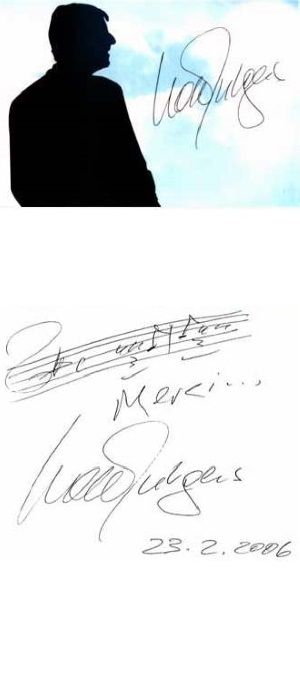 Udo Jurgens
Merci...
Udo Jurgens
23.2.2006